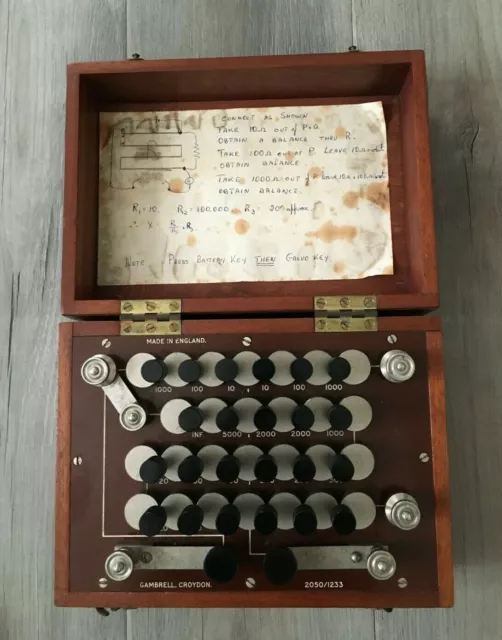 CONNECT AS SHOWN
TAKE 10Ω OUT OF P+Q.
OBTAIN A BALANCE THRU R.
TAKE 100Ω OUT OF P. LEAVE 10Ω
OBTAIN BALANCE.
TAKE 1000Ω OUT OF P
OBTAIN BALANCE.
R₁ = 10. R₂ = 100,000. R₃ = 20Ω approx.
∴ X =
NOTE PRESS BATTERY KEY THEN GALVO KEY.
MADE IN ENGLAND.
1000 100 10 10 100 1000
INF. 5000 2000 2000 1000
20
GAMBRELL, CROYDON. 2050/1233